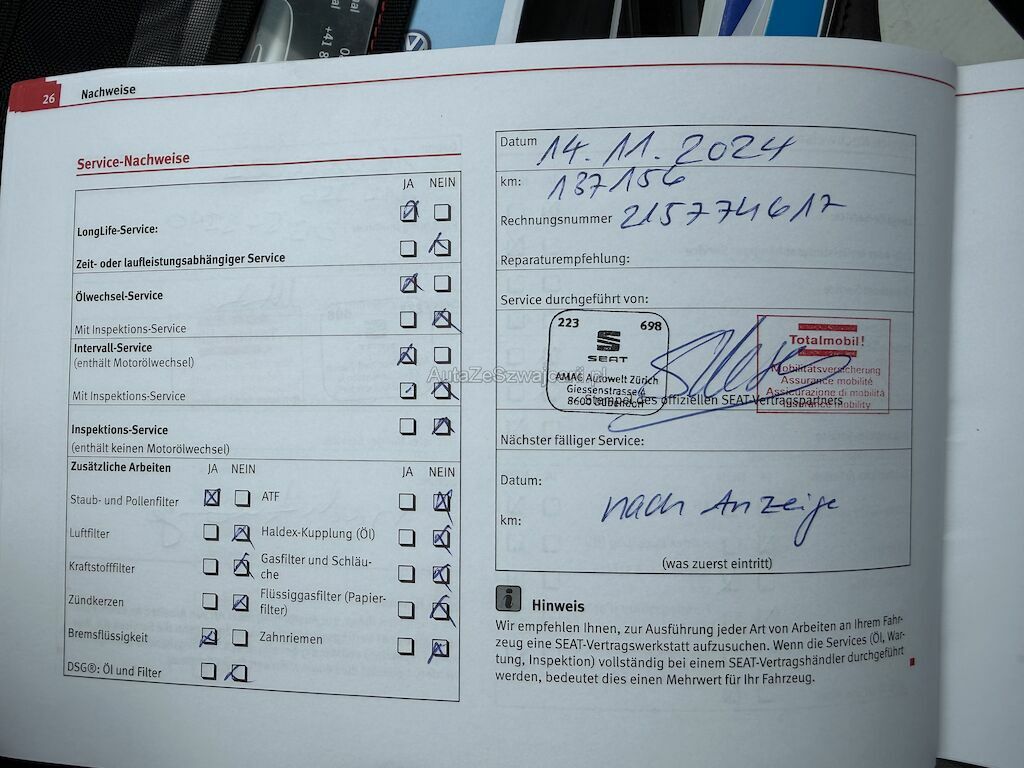 26 Nachweise
Service-Nachweise
JA NEIN
LongLife-Service:
Zeit- oder laufleistungsabhängiger Service
Ölwechsel-Service
Mit Inspektions-Service
Intervall-Service
(enthält Motorölwechsel)
Mit Inspektions-Service
Inspektions-Service
(enthält keinen Motorölwechsel)
Zusätzliche Arbeiten JA NEIN JA NEIN
Staub- und Pollenfilter ATF
Luftfilter Haldex-Kupplung (Öl)
Kraftstofffilter Gasfilter und Schläu-
che
Zündkerzen Flüssiggasfilter (Papier-
filter)
Bremsflüssigkeit Zahnriemen
DSG®: Öl und Filter
Datum 14.11.2024
km: 137156
Rechnungsnummer 2157774617
Reparaturempfehlung:
Service durchgeführt von:
223 698
SEAT
AMAG Autowelt Zürich
Giessenstrasse
8600 Dübendorf
Totalmobil!
Mobilitätsversicherung
Assurance mobilité
Assicurazione di mobilità
Insurance mobility
Stempel des offiziellen SEAT-Vertragspartners
Nächster fälliger Service:
Datum:
nach Anzeige
km:
(was zuerst eintritt)
Hinweis
Wir empfehlen Ihnen, zur Ausführung jeder Art von Arbeiten an Ihrem Fahr-
zeug eine SEAT-Vertragswerkstatt aufzusuchen. Wenn die Services (Öl, War-
tung, Inspektion) vollständig bei einem SEAT-Vertragshändler durchgeführt
werden, bedeutet dies einen Mehrwert für Ihr Fahrzeug.